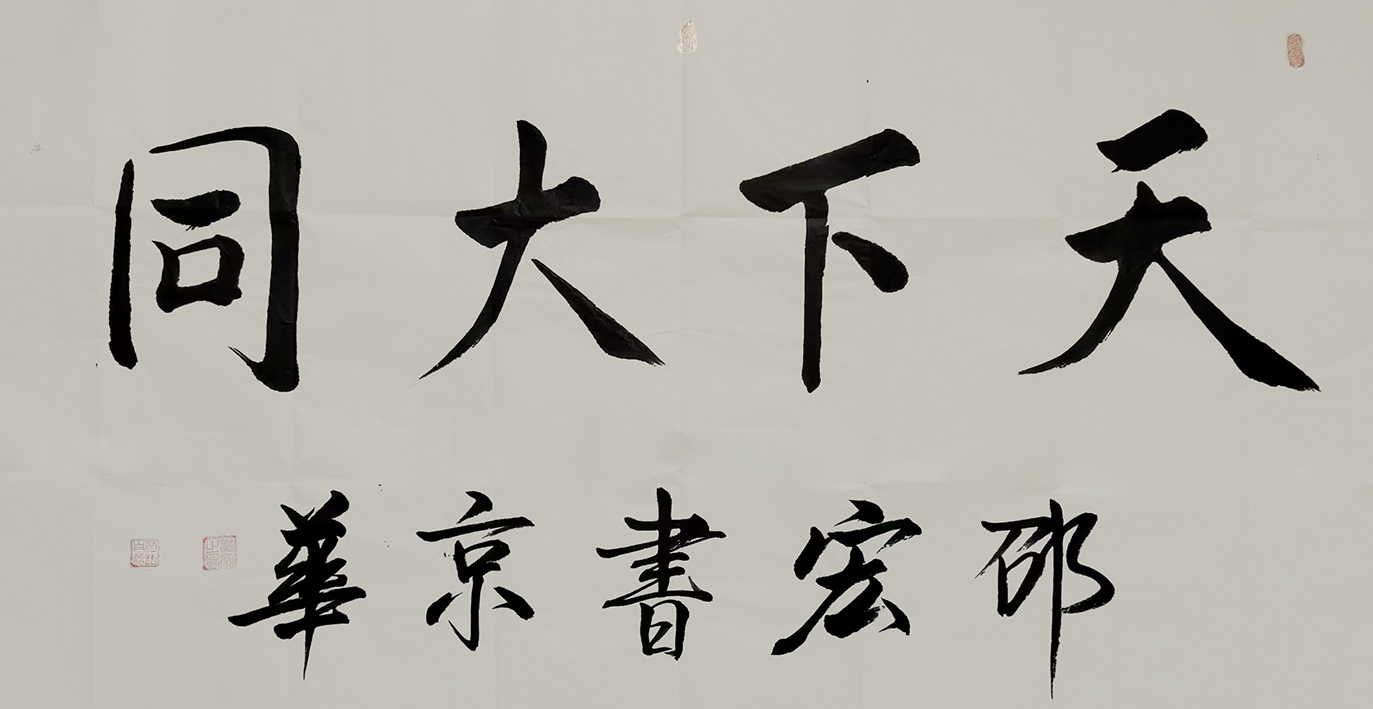 天下大同
邵宏書京華